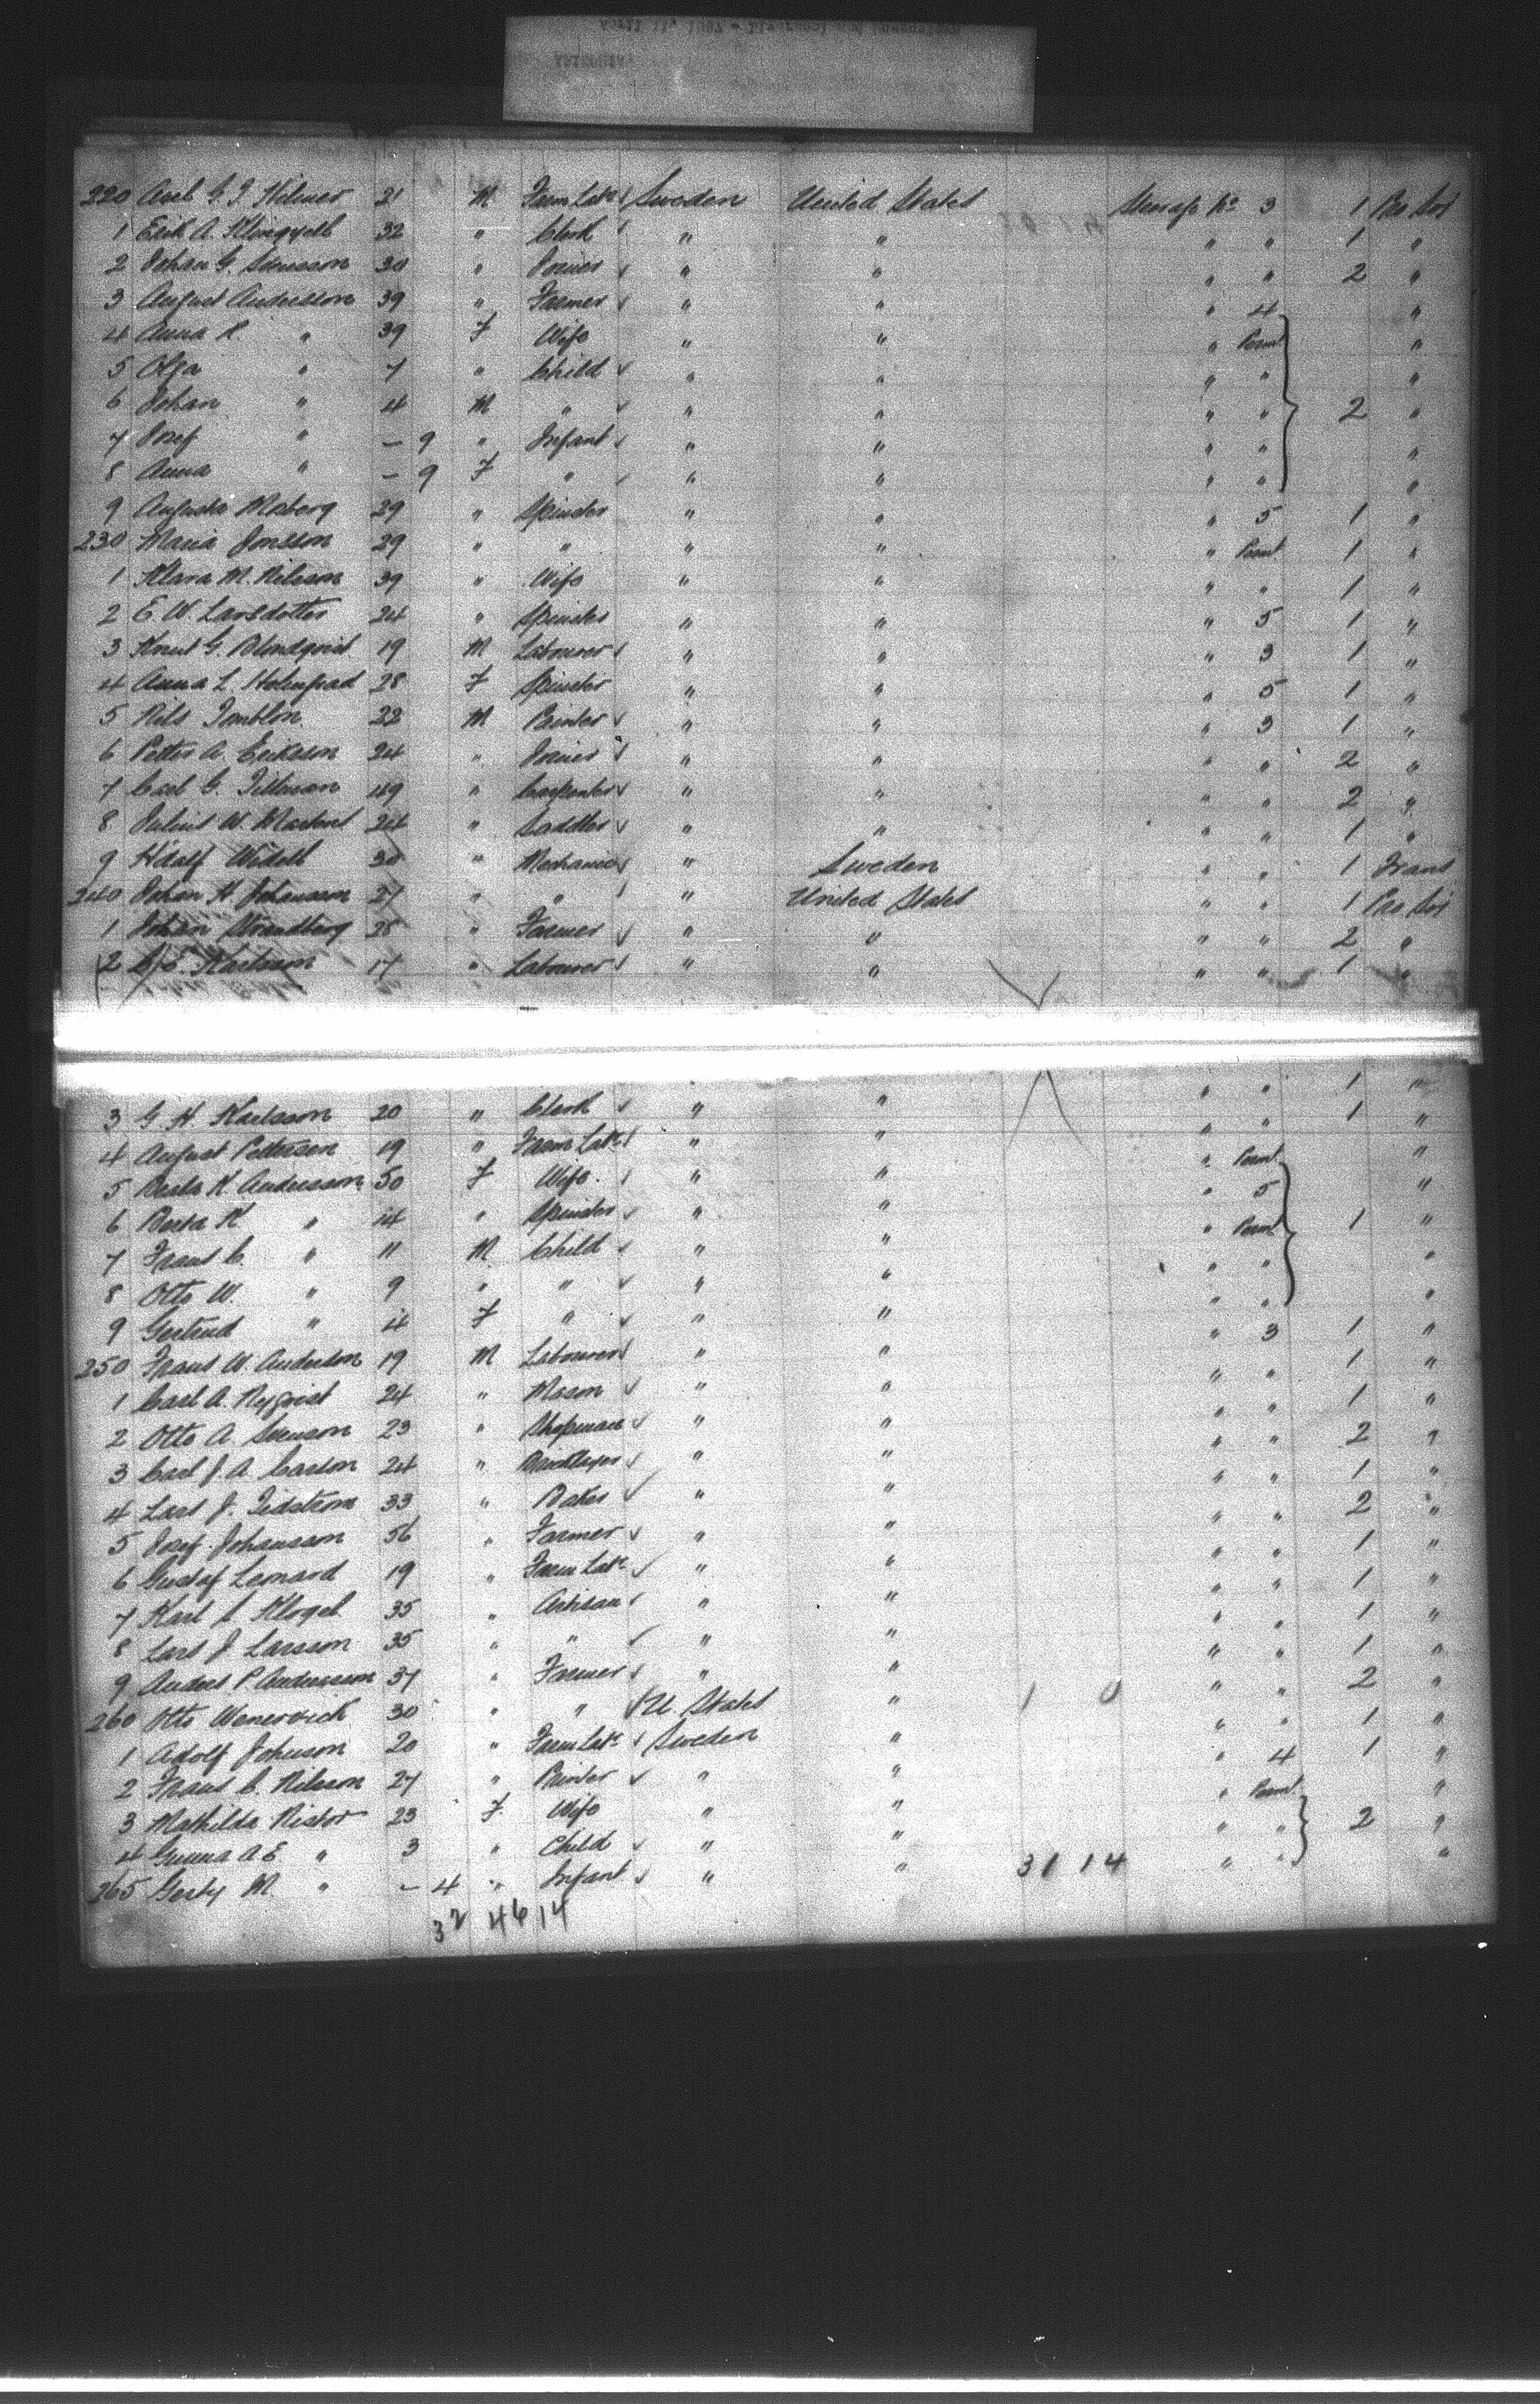 220 Axel G. J. Hilmer 21 M Farm Labr Sweden United States Steerage No 3 1 Pro Soj
1 Erik A. Klingvell 32 " Clerk " " " " 1 "
2 Johan G. Svensson 30 " Joiner " " " " 2 "
3 August Andersson 39 " Farmer " " " 4 "
4 Anna K. " 39 F Wife " " " Forwd "
5 Olga " 7 " Child " " " " "
6 Johan " 4 M " " " " " 2 "
7 Josef " - 9 " Infant " " " " "
8 Anna " - 9 F " " " " " "
9 Augusta Moberg 29 " Spinster " " " 5 1 "
230 Maria Jonsson 29 " " " " " Forwd 1 "
1 Klara M. Nilsson 39 " Wife " " " " 1 "
2 E. W. Larsdotter 24 " Spinster " " " 5 1 "
3 Knut G. Blomdqvist 19 M Labourer " " " 3 1 "
4 Anna L. Holmgrad 28 F Spinster " " " 5 1 "
5 Nils Tomblon 22 M Painter " " " 3 1 "
6 Petter A. Erikson 24 " Joiner " " " " 2 "
7 Carl G. 49 " Carpenter " " " " 2 "
8 Julius W. 24 " Saddler " " " " 1 "
9 Widell 30 " Mechanic " Sweden " " 1 Trans
240 Johan H Johansson 27 " " " United States " " 1 Pro Soj
1 Johan Strandberg 25 " Farmer " " " " 2 "
2 Karlsson 17 " Labourer " " " " 1 "
3 G H Karlsson 20 " Clerk " " " " 1 "
4 August Petterson 19 " Farm Labr " " " " 1 "
5 Beata K. Andersson 50 F Wife " " " Forwd "
6 Berta K " 14 " Spinster " " " 5 "
7 Frans C. " 11 M Child " " " Forwd 1 "
8 Otto W. " 9 " " " " " " "
9 Gertrud " 4 F " " " " " "
250 Frans W. Anderson 19 M Labourer " " " 3 1 "
1 Carl A. Nyqvist 24 " Mason " " " " 1 "
2 Otto A. Svenson 23 " Shopman " " " " 1 "
3 Carl J. A. Carlson 24 " Bricklayer " " " " 2 "
4 Lars J. Tidstrom 33 " Baker " " " " 1 "
5 Josef Johansson 56 " Farmer " " " " 2 "
6 Gustaf Lennard 19 " Farm Labr " " " " 1 "
7 Karl S Klogel 35 " Artisan " " " " 1 "
8 Lars J Larsson 35 " " " " " " 1 "
9 Anders P Andersson 37 " Farmer " " " " 1 "
260 Otto Wenervick 30 " " U. States " 1 0 " " 2 "
1 Adolf Johnson 20 " Farm Labr Sweden " " " 1 "
2 Frans C. Nilsson 27 " Painter " " " 4 1 "
3 Mathilda Nistor 23 F Wife " " " Forwd "
4 Gunna A E " 3 " Child " " " " 2 "
265 Gerly M. " - 4 " Infant " " 31 14 " " "
32 46 14